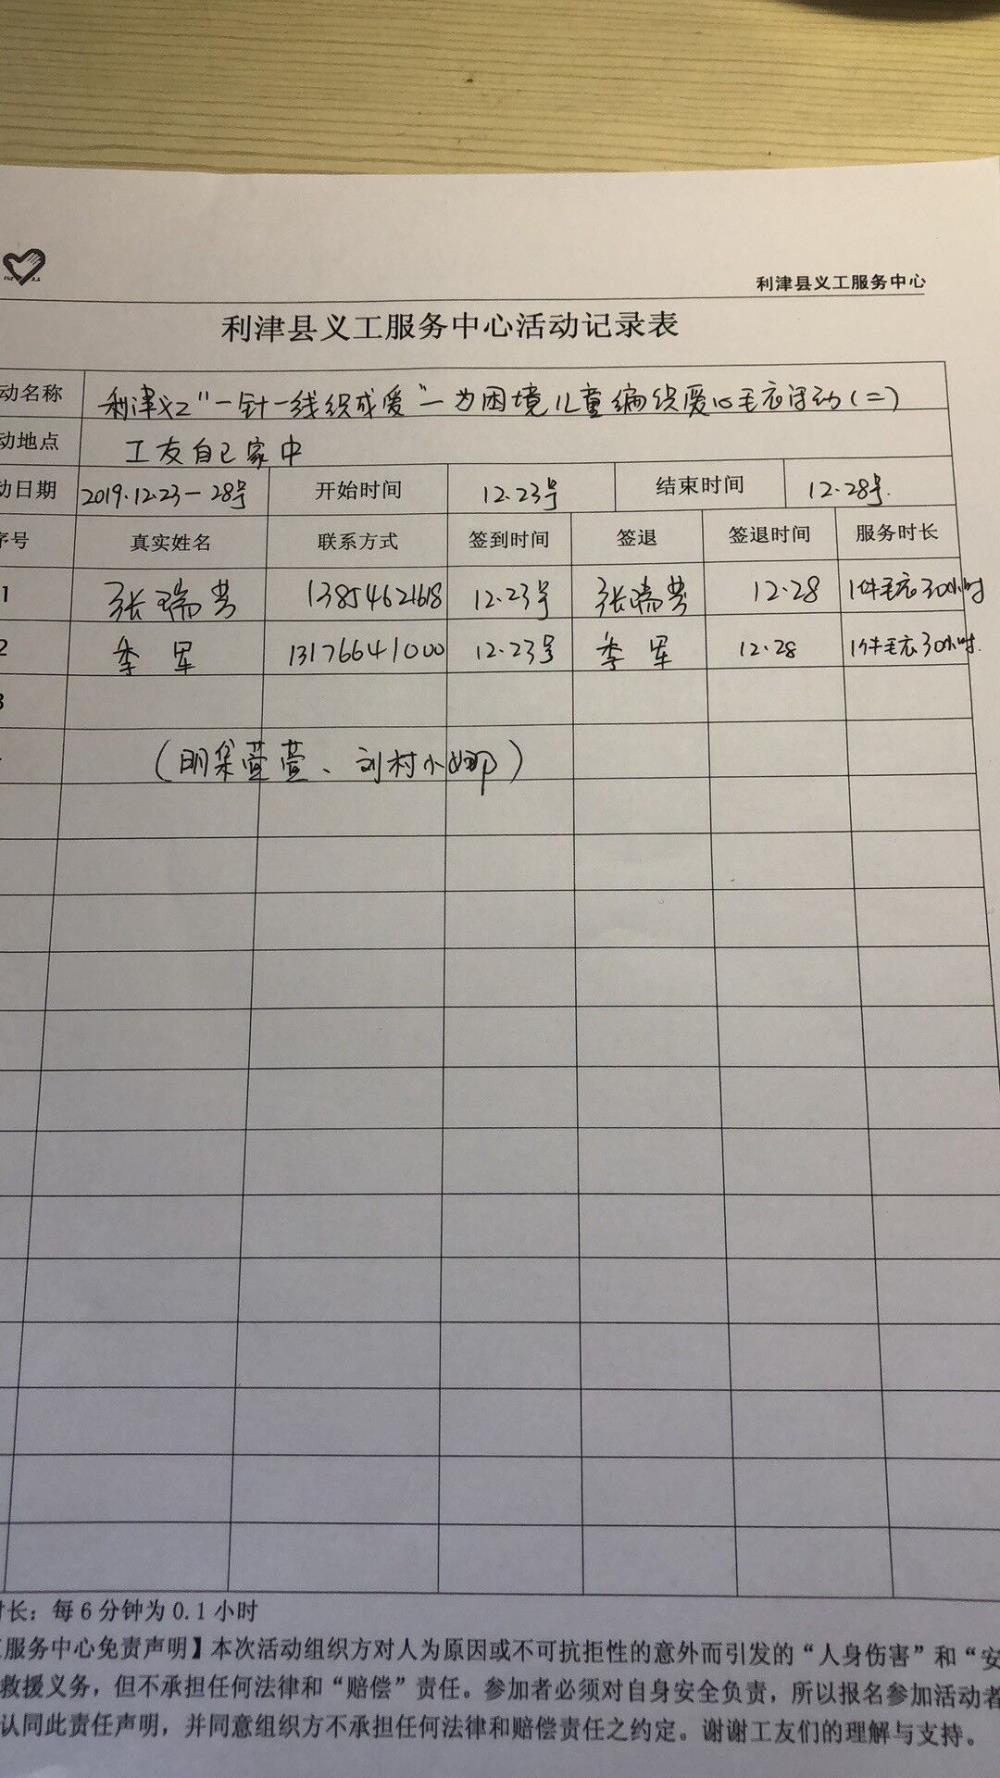 利津县义工服务中心
利津县义工服务中心活动记录表
动名称 利津义工"一针一线织成爱"一为困境儿童编织爱心毛衣活动(二)
动地点 工友自己家中
动日期 2019.12.23-28号 开始时间 12.23号 结束时间 12.28号.
序号 真实姓名 联系方式 签到时间 签退 签退时间 服务时长
1 张瑞芳 13854621618 12.23号 张瑞芳 12.28 1件毛衣30小时
2 李军 13176641000 12.23号 李军 12.28 1件毛衣30小时.
3
(明集萱萱、刘村小娜)
时长：每6分钟为0.1小时
服务中心免责声明】本次活动组织方对人为原因或不可抗拒性的意外而引发的“人身伤害”和“安
救援义务，但不承担任何法律和“赔偿”责任。参加者必须对自身安全负责，所以报名参加活动者
认同此责任声明，并同意组织方不承担任何法律和赔偿责任之约定。谢谢工友们的理解与支持。